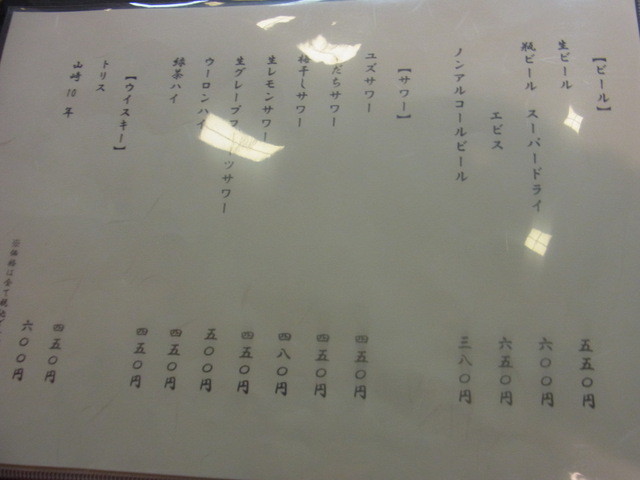 【ビール】
生ビール 五五〇円
瓶ビール スーパードライ 六〇〇円
エビス 六五〇円
ノンアルコールビール 三八〇円
【サワー】
ユズサワー 四五〇円
だちサワー 四五〇円
梅干しサワー 四八〇円
生レモンサワー 四五〇円
生グレープフルーツサワー 五〇〇円
ウーロンハイ 四五〇円
緑茶ハイ 四五〇円
【ウイスキー】
トリス 四五〇円
山崎10年 六〇〇円
※価格は全て税込